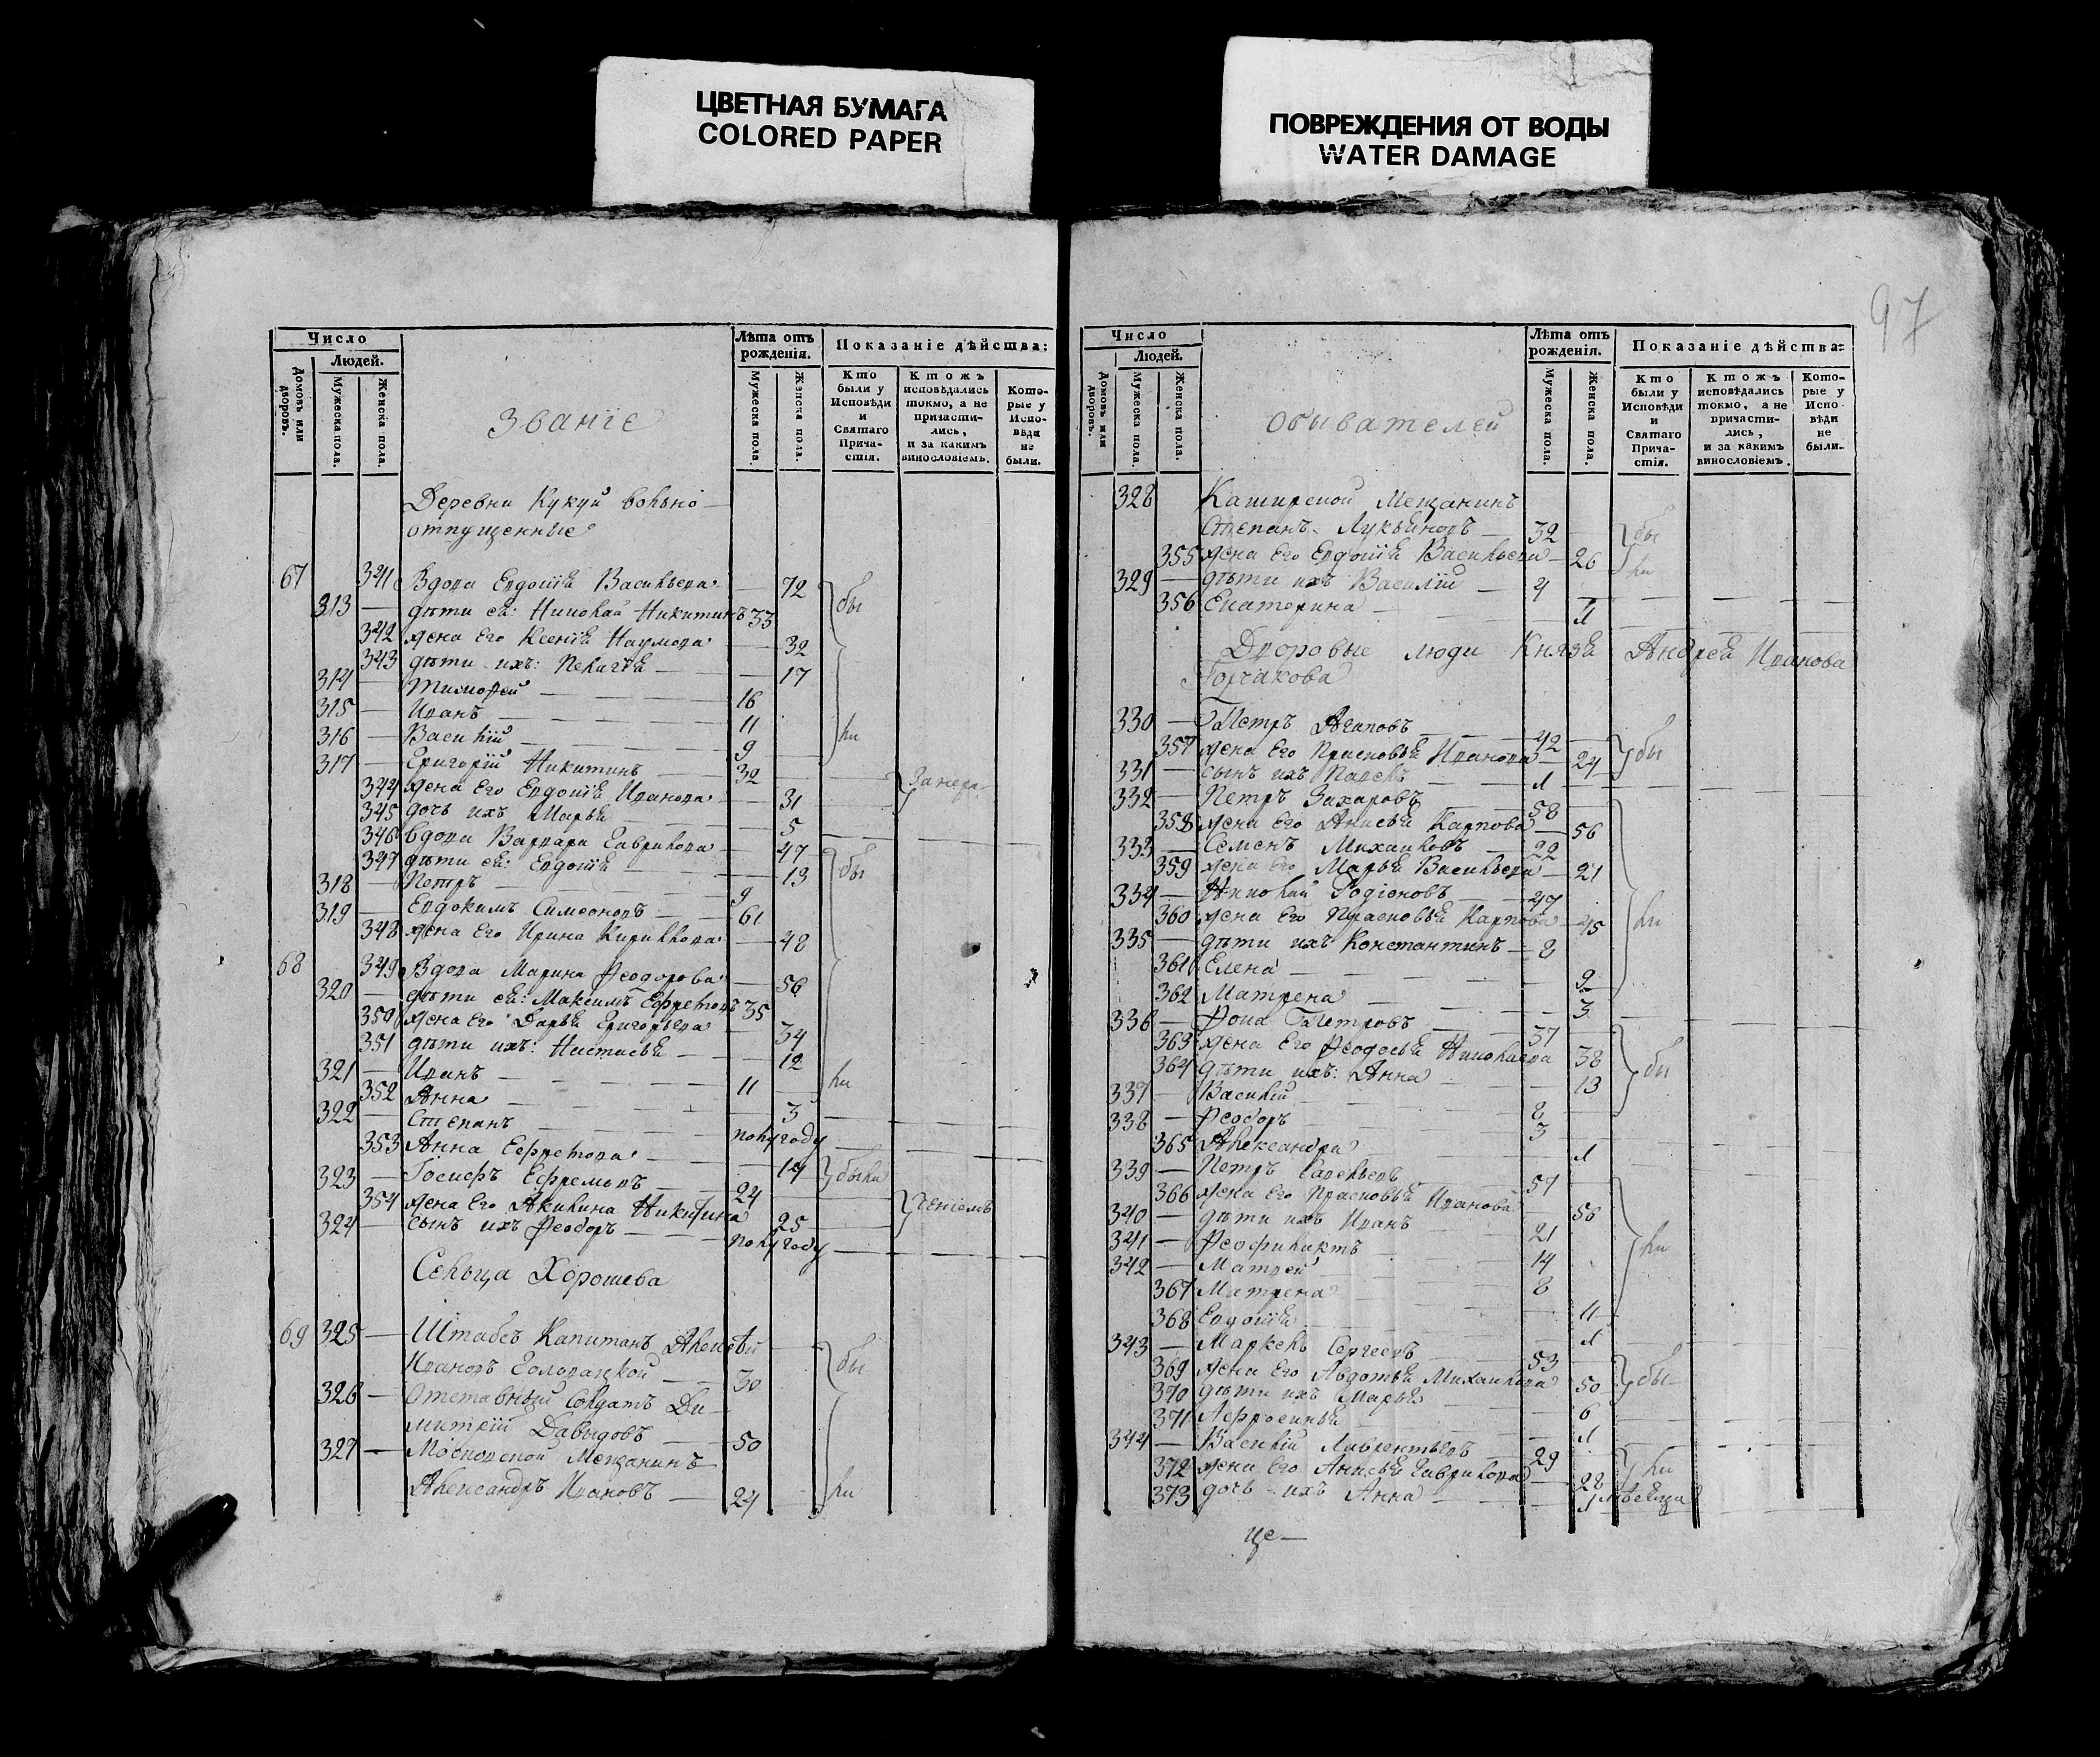 ЦВЕТНАЯ БУМАГА
COLORED PAPER
ПОВРЕЖДЕНИЯ ОТ ВОДЫ
WATER DAMAGE
97
Число
Людей.
Домовъ или дворовъ.
Мужеска пола.
Женска пола.
Званїе
Лѣта отъ рожденія.
Мужеска пола.
Женска пола.
Показаніе дѣйства:
Кто были у Исповѣди и Святаго Прича-стія.
Ктожъ исповѣдались токмо, а не причасти-лись, и за какимъ винословіемъ.
Кото-рые у Испо-вѣди не были.
Деревни Кукуй вольно
отпущенные
67 341 Вдова Евдокія Васильева 72
313 дѣти ея: Николай Никитинъ 33 бы
342 жена Его Ксенія Наумова 32
343 дѣти ихъ: Пелагѣя 17
314 Тимофей 16
315 Иванъ 11
316 Василій 9 ли
317 Григорій Никитинъ 32
344 жена Его Евдокія Иванова 31 За нера
345 дочь ихъ Марья 5
346 вдова Варвара Гаврилова 47
347 дѣти ея: Евдокія 13 бы
318 Петръ 9
319 Евдокимъ Симеоновъ 61
348 жена Его Ирина Кирилова 48
68 349 Вдова Марина Феодорова 56
320 дѣти ея: Максимъ Ефремовъ 35
350 жена Его Дарья Григорьева 34
351 дѣти ихъ: Настасья 12
321 Иванъ 11 ли
352 Анна 3
322 Степанъ полугоду
353 Анна Ефремова 14 были
323 Іосифъ Ефремовъ 24
354 жена Его Акилина Никитина 25 ченіемъ
324 сынъ ихъ Феодоръ полугоду
Сельца Хорошева
69 325 Штабсъ Капитанъ Алексѣй
Ивановъ 30 бы
326 Отставный Солдатъ Ди-
митрій Давыдовъ 50
327 Московской Мещанинъ
Александръ Ивановъ 24 ли
Число
Людей.
Домовъ или дворовъ.
Мужеска пола.
Женска пола.
Обывателей
Лѣта отъ рожденія.
Мужеска пола.
Женска пола.
Показаніе дѣйства:
Кто были у Исповѣди и Святаго Прича-стія.
Ктожъ исповѣдались токмо, а не причасти-лись, и за какимъ винословіемъ.
Кото-рые у Испо-вѣди не были.
328 Каширской Мещанинъ
Степанъ Лукьяновъ 32 бы
355 жена Его Евдокія Васильева 26 ли
329 дѣти ихъ Василій 4
356 Екатерина 1
Дворовые люди Князя Андрея Иванова
Горчакова
330 Петръ Агаповъ 42
357 жена Его Прасковья Иванова 24 бы
331 сынъ ихъ Павелъ 1
332 Петръ Захаровъ 58
358 жена Его Анисья Карпова 56
333 Семенъ Михаиловъ 22
359 жена Его Марья Васильева 21
334 Николай Родіоновъ 47
360 жена Его Прасковья Карпова 45 ли
335 дѣти ихъ Константинъ 8
361 Елена 9
362 Матрена 3
336 Фома Петровъ 37
363 жена Его Феодосья Николаева 38
364 дѣти ихъ: Анна 13 бы
337 Василій 8
338 Феодоръ 3
365 Александра 1
339 Петръ Савельевъ 57
366 жена Его Прасковья Иванова 56
340 дѣти ихъ Иванъ 21
341 Феофилактъ 14 ли
342 Матвей 8
367 Матрена 11
368 Евдокія 1
343 Маркелъ Сергеевъ 53
369 жена Его Авдотья Михаилова 50 бы
370 дѣти ихъ Марья 6
371 Афросинья 1
344 Василій Лаврентьевъ 29
372 жена Его Анисья Гаврилова 28 ли
373 дочь ихъ Анна 1 мѣсяца
це—